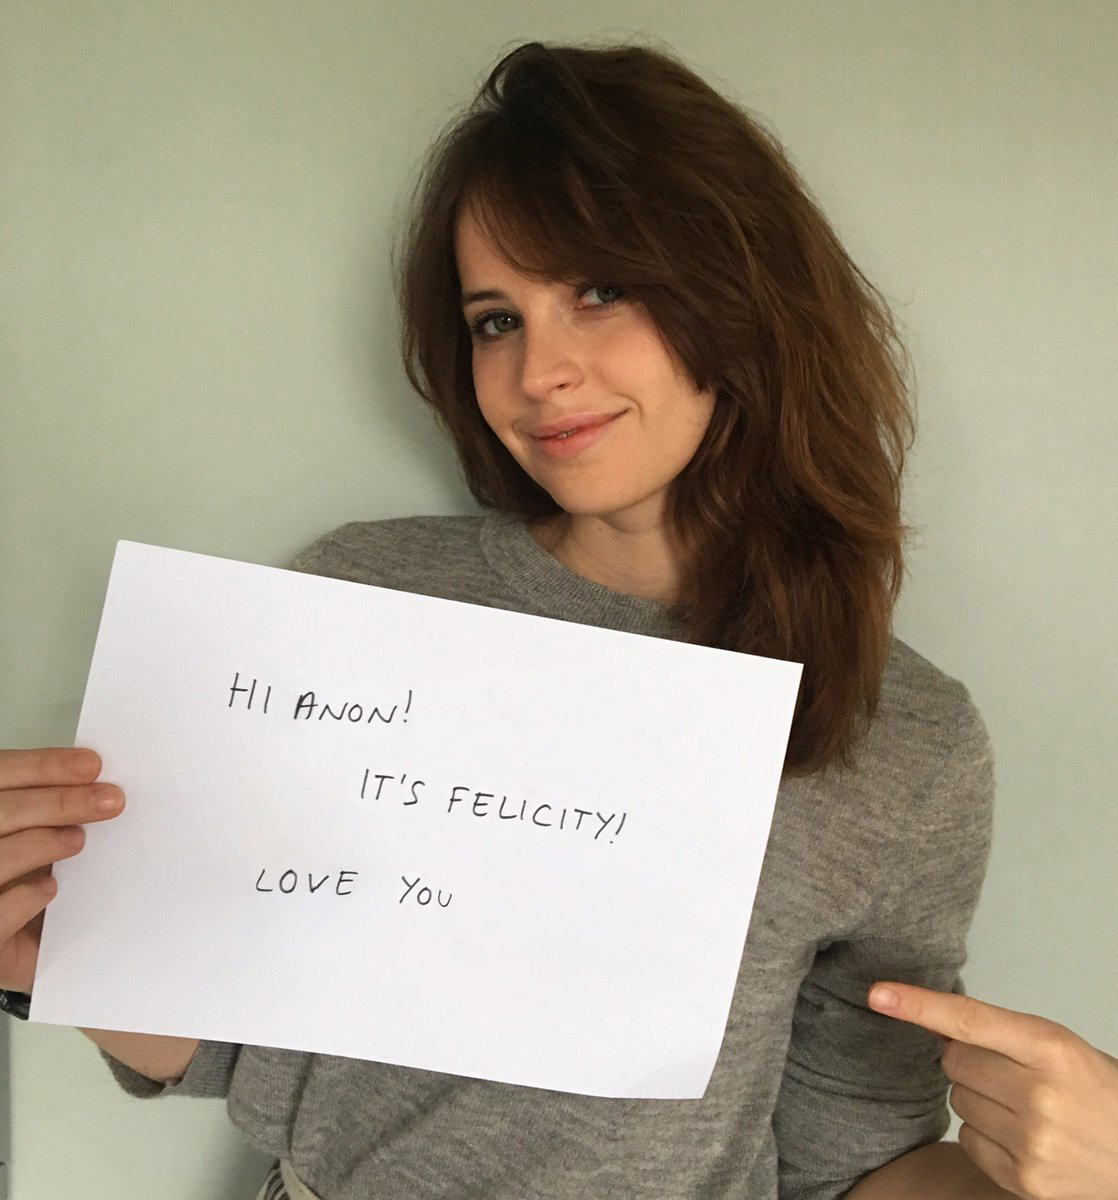 HI ANON!
IT'S FELICITY!
LOVE YOU